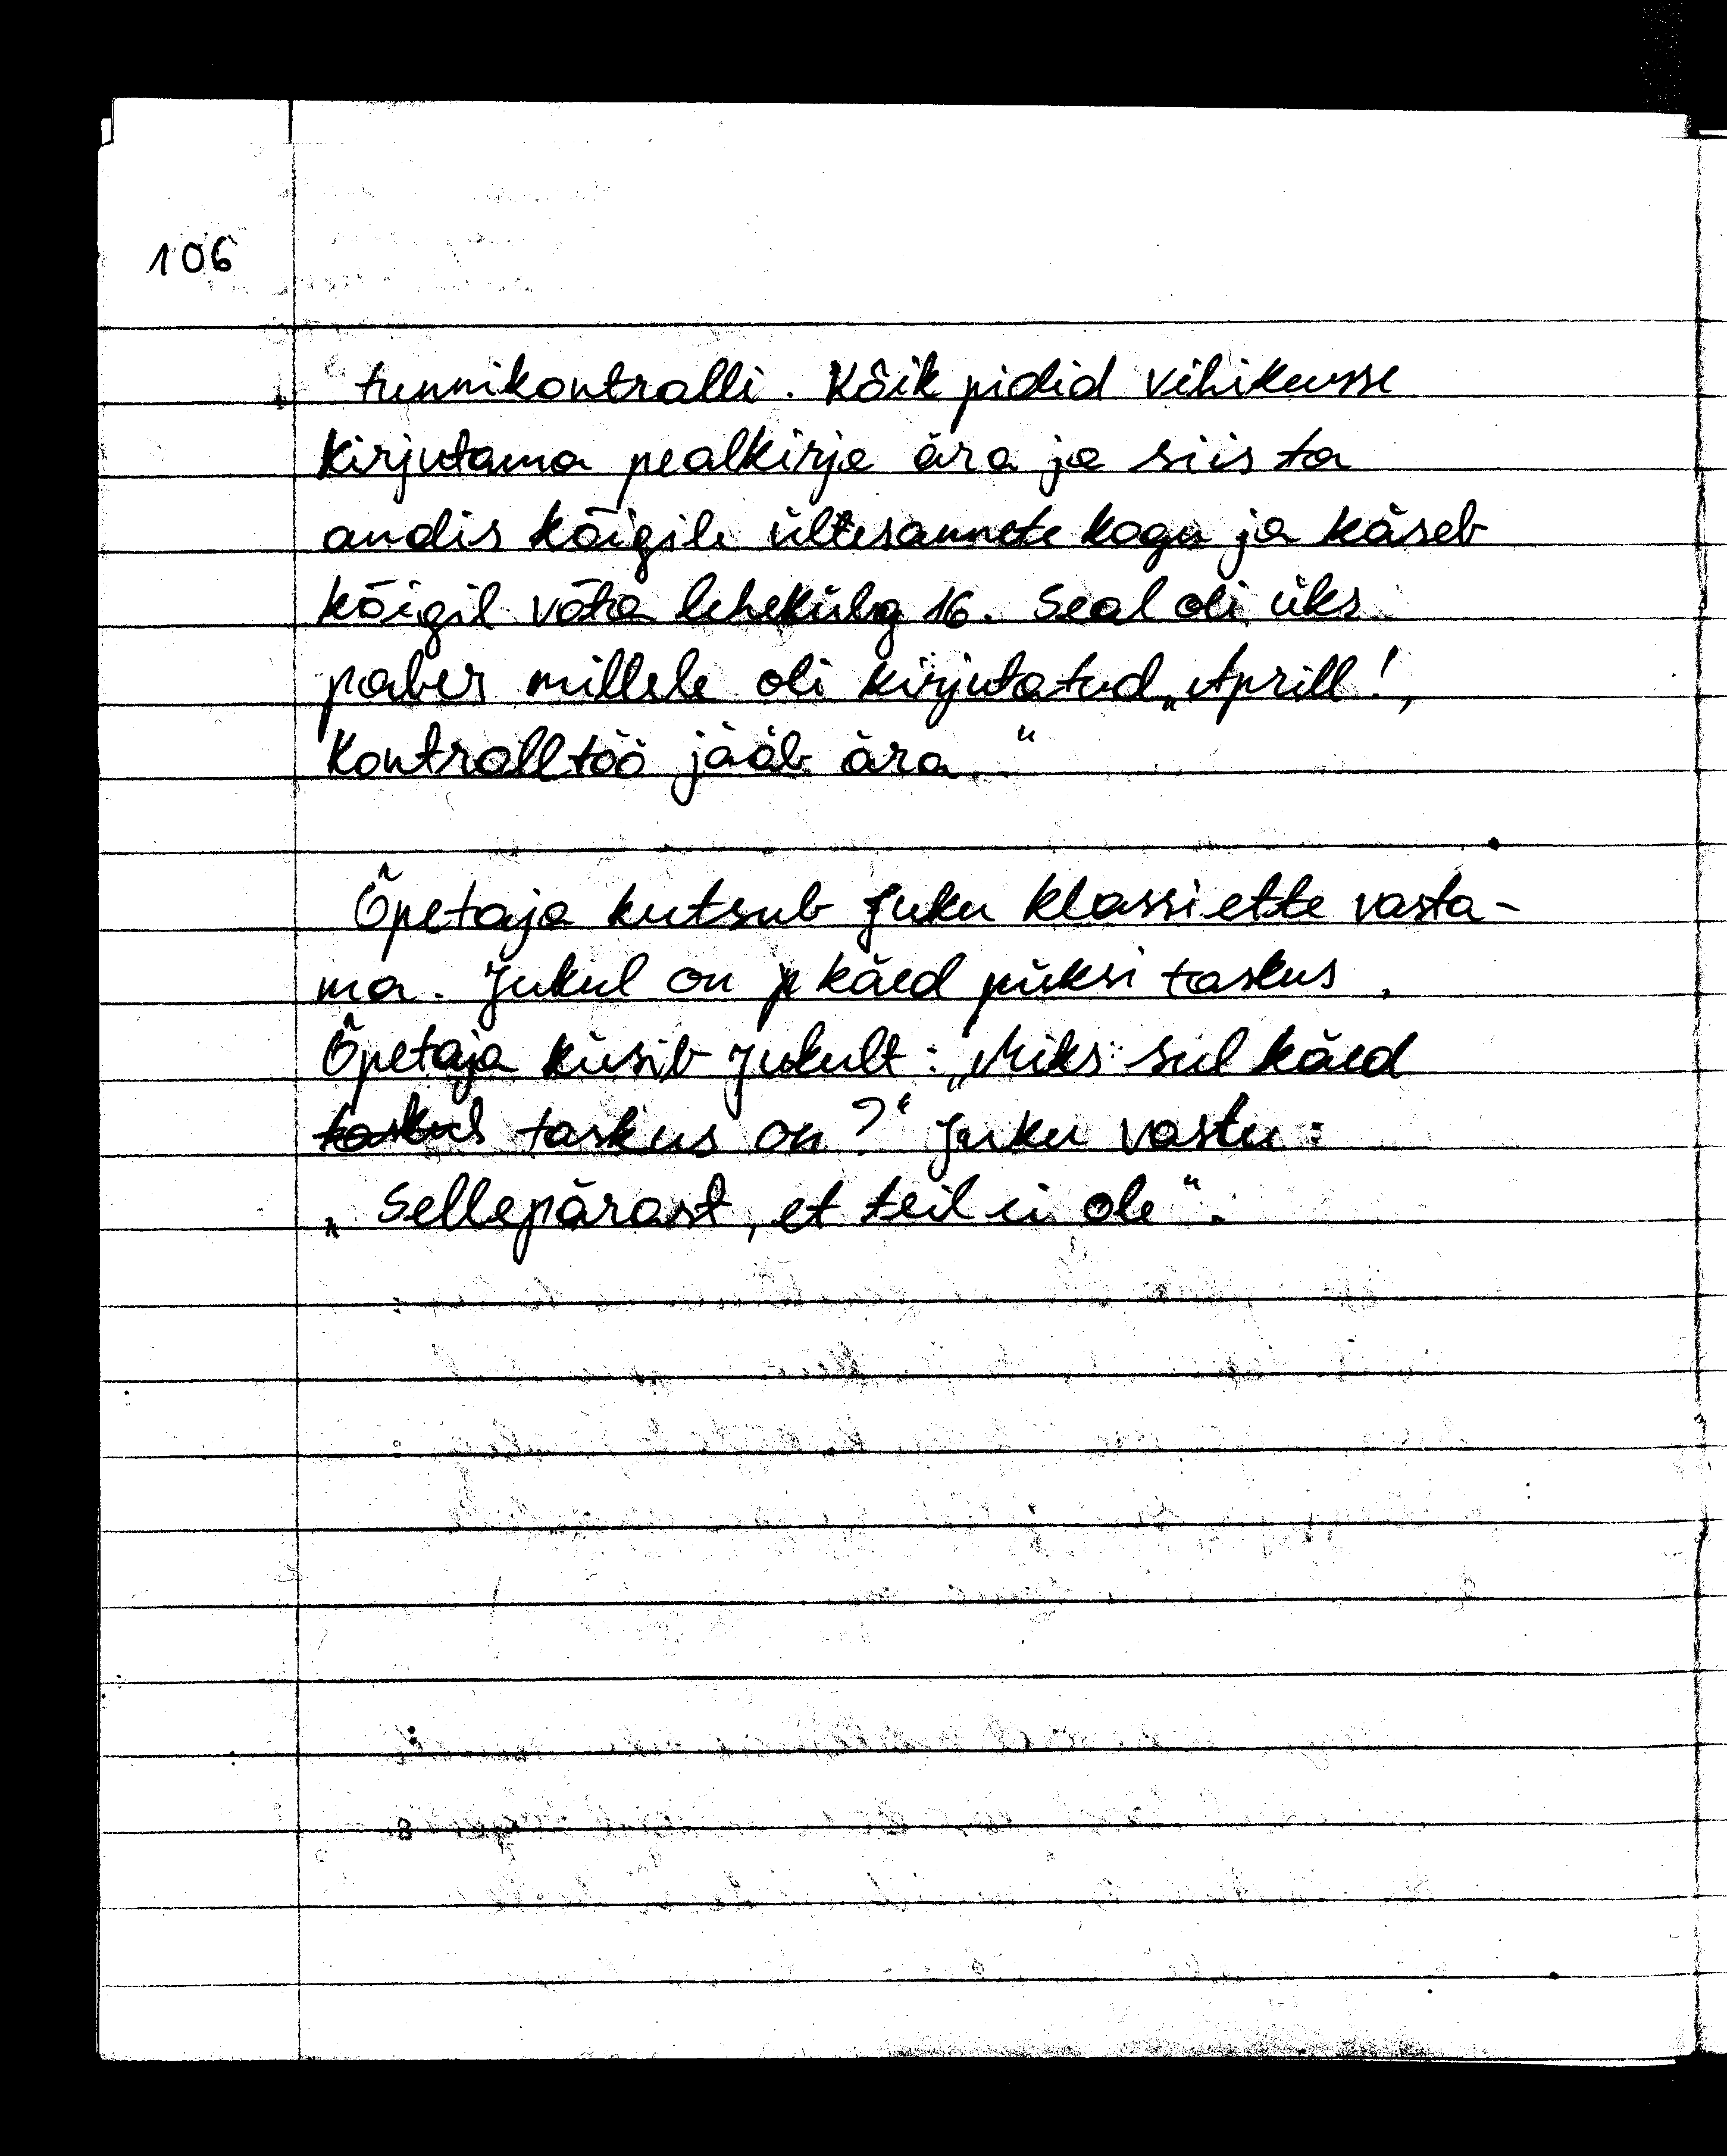 106
tunnikontrolli. Kõik pidid vihikusse
kirjutama pealkirja ära ja siis ta
andis kõigile ültesannete kogu ja käseb
kõigil võta lehekülg 16. Seal oli üks
paber millele oli kirjutatud „Aprill!,
Kontrolltöö jääb ära."
Õpetaja kutsub Juku klassi ette vasta-
ma. Jukul on p käed püksi taskus.
Õpetaja küsib Jukult: „Miks sul käed
taskus taskus on?" Juku vastu:
„Sellepärast, et teil ei ole".